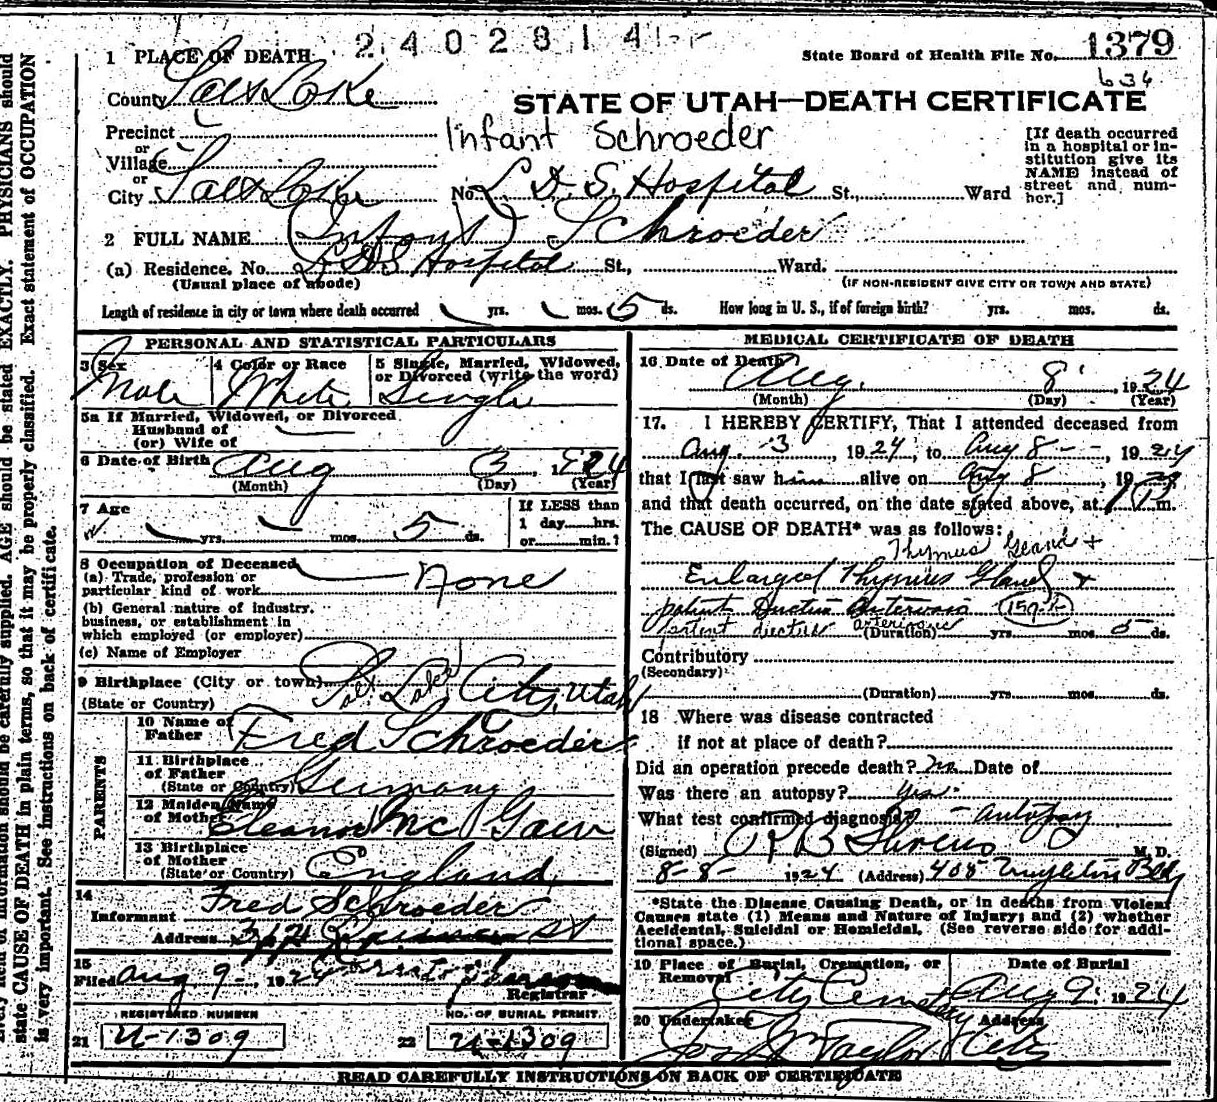 2402814
State Board of Health File No. 1379
636
1 PLACE OF DEATH
County Salt Lake
STATE OF UTAH—DEATH CERTIFICATE
Precinct
or
Village
or
City Salt Lake No. L. D. S. Hospital St., Ward
Infant Schroeder
[If death occurred in a hospital or in-
stitution give its
NAME instead of
street and num-
ber.]
2 FULL NAME (Infant) Schroeder
(a) Residence. No. L. D. S. Hospital St., Ward.
(Usual place of abode) (IF NON-RESIDENT GIVE CITY OR TOWN AND STATE)
Length of residence in city or town where death occurred yrs. mos. 5 ds. How long in U. S., if of foreign birth? yrs. mos. ds.
PERSONAL AND STATISTICAL PARTICULARS
3 Sex Male
4 Color or Race White
5 Single, Married, Widowed,
or Divorced (write the word) Single
5a If Married, Widowed, or Divorced
Husband of
(or) Wife of
6 Date of Birth Aug 3, 1924
(Month) (Day) (Year)
7 Age
yrs. mos. 5 ds.
If LESS than
1 day hrs.
or min.?
8 Occupation of Deceased
(a) Trade, profession or
particular kind of work None
(b) General nature of industry,
business, or establishment in
which employed (or employer)
(c) Name of Employer
9 Birthplace (City or town) Salt Lake City, Utah
(State or Country)
PARENTS
10 Name of
Father Fred Schroeder
11 Birthplace
of Father
(State or Country) Germany
12 Maiden Name
of Mother Eleanor Mc
13 Birthplace
of Mother
(State or Country) England
14
Informant Fred Schroeder
Address St
15
Filed Aug 9, 1924
Registrar
REGISTERED NUMBER
21 U-1309
NO. OF BURIAL PERMIT
22 U-1309
MEDICAL CERTIFICATE OF DEATH
16 Date of Death Aug. 8, 1924
(Month) (Day) (Year)
17. I HEREBY CERTIFY, That I attended deceased from
Aug. 3, 1924, to Aug 8, 1924
that I last saw him alive on Aug 8, 19
and that death occurred, on the date stated above, at 1 P m.
The CAUSE OF DEATH* was as follows:
Thymus Gland +
Enlarged Thymus Gland +
patent Ductus Arteriosus
patent ductus arteriosus
(Duration) yrs. mos. 5 ds.
Contributory
(Secondary)
(Duration) yrs. mos. ds.
18 Where was disease contracted
if not at place of death?
Did an operation precede death? no Date of
Was there an autopsy? yes.
What test confirmed diagnosis? autopsy
(Signed) M. D.
8-8-, 1924 (Address) 408 Bldg
*State the Disease Causing Death, or in deaths from Violent
Causes state (1) Means and Nature of Injury; and (2) whether
Accidental, Suicidal or Homicidal. (See reverse side for addi-
tional space.)
19 Place of Burial, Cremation, or
Removal City Cemetery
Date of Burial
Aug 9, 1924
20 Undertaker Jos Wm Taylor
Address City
READ CAREFULLY INSTRUCTIONS ON BACK OF CERTIFICATE
information should be carefully supplied. AGE should be stated EXACTLY. PHYSICIANS should
state CAUSE OF DEATH in plain terms, so that it may be properly classified. Exact statement of OCCUPATION
is very important. See instructions on back of certificate.